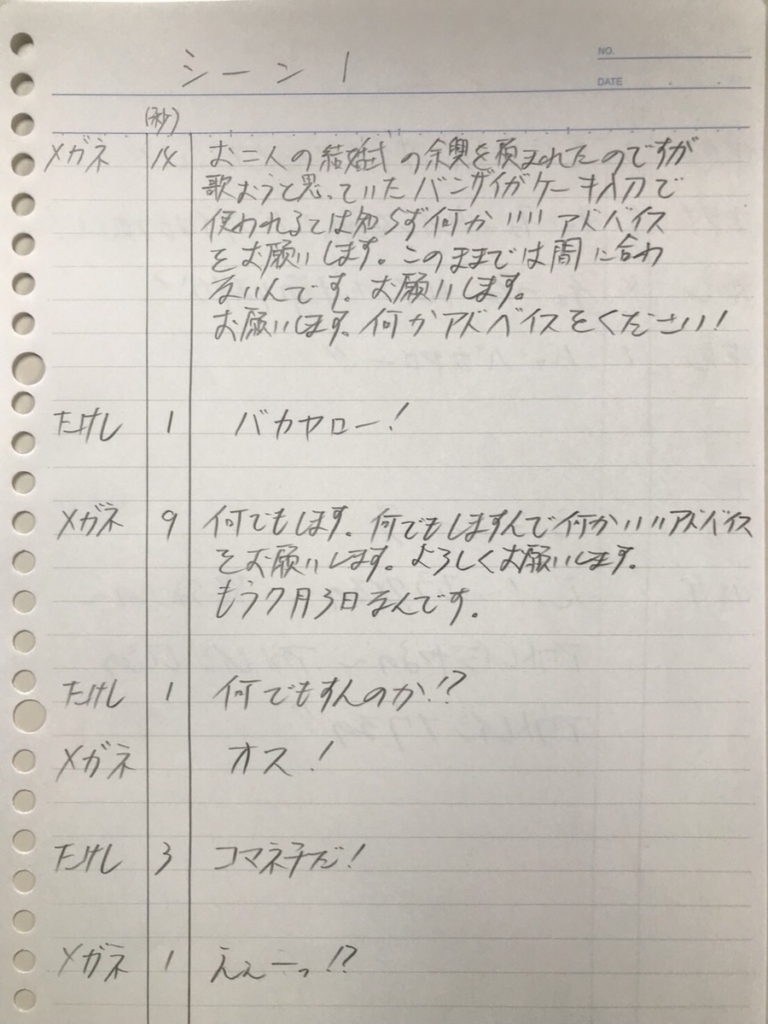 NO.
シーン 1
DATE
(秒)
メガネ 14 お二人の結婚式の余興を頼まれたのですが
歌おうと思っていたバンザイがケーキ入刀で
使われるとは知らず何かいいアドバイス
をお願いします。このままでは間に合わ
ないんです。お願いします。
お願いします。何かアドバイスをください!
たけし 1 バカヤロー!
メガネ 9 何でもします。何でもしますんで何かいいアドバイス
をお願いします。よろしくお願いします。
もう7月3日なんです。
たけし 1 何でもすんのか!?
メガネ オス!
たけし 3 コマネチだ!
メガネ 1 えぇーっ!?